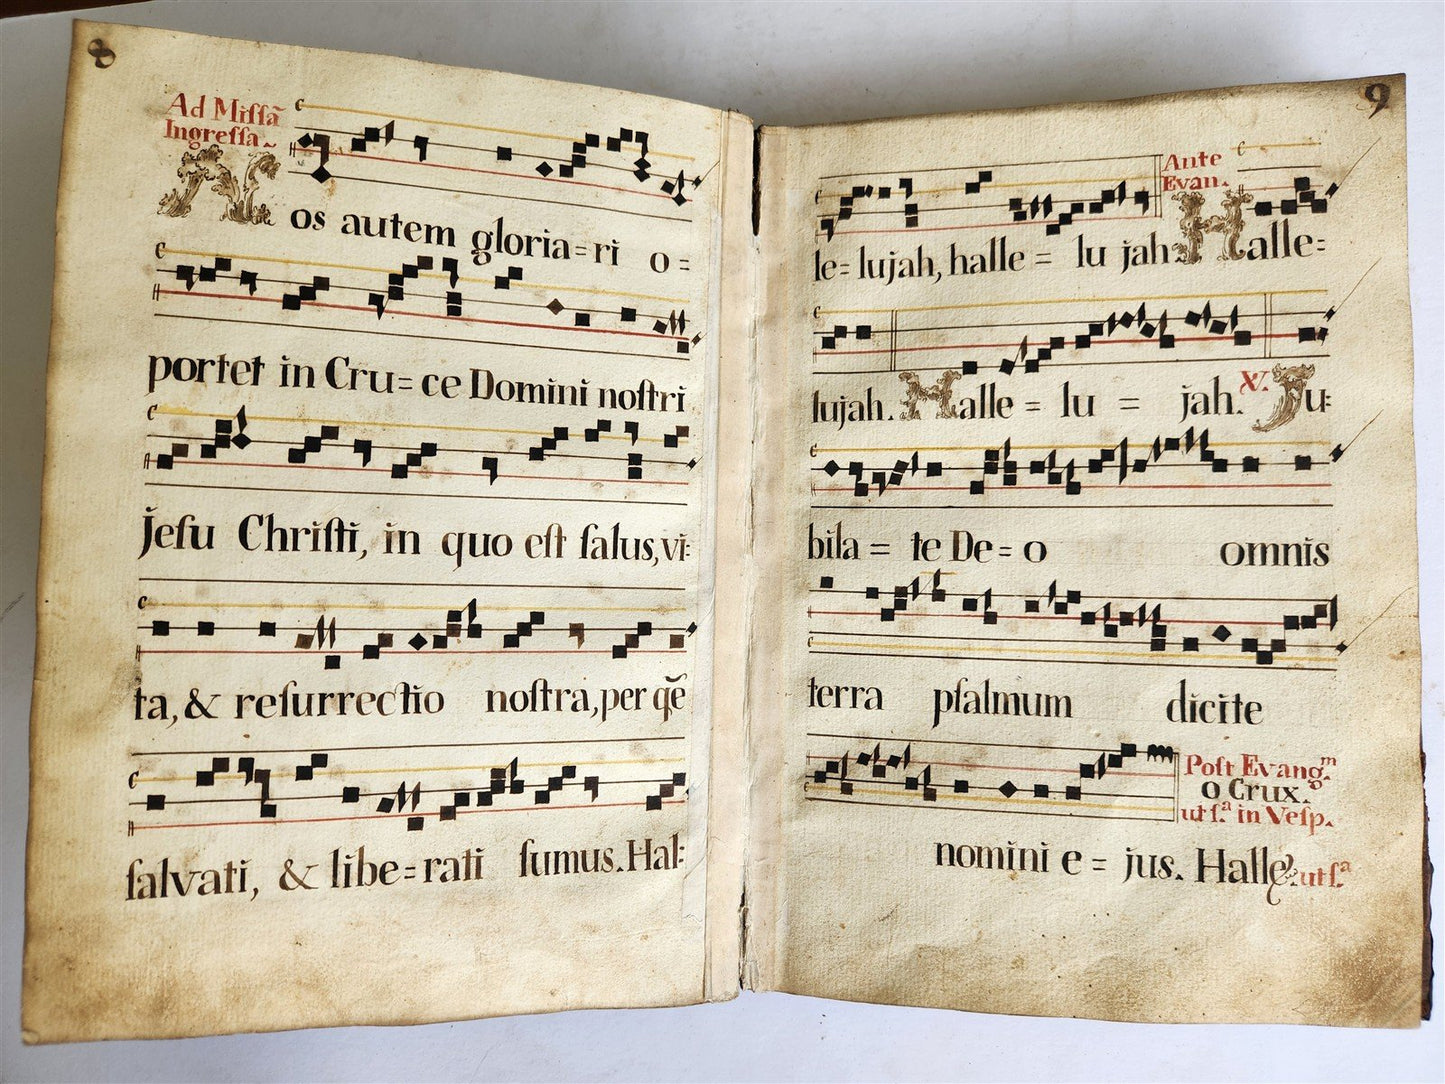 8
Ad Miſſã
Ingreſſa.
Nos autem gloria=ri o=
portet in Cru=ce Domini noſtri
Jeſu Chriſti, in quo eſt ſalus, vi=
ta, & reſurrectio noſtra, per qẽ
ſalvati, & libe=rati ſumus. Hal=
9
le=lujah, halle= lu jah.
Ante
Evan.
Halle=
lujah. Halle= lu = jah. ℣. Ju=
bila= te De=o omnis
terra pſalmum dicite
Poſt Evang.m
O Crux.
ut ſ.a in Veſp.
nomini e= jus. Halle. ut ſ.a